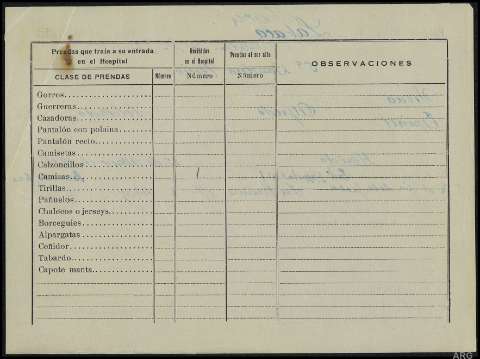 Prendas que traía a su entrada en el Hospital
Recibido en el Hospital
Prendas al ser alta
OBSERVACIONES
CLASE DE PRENDAS
Número
Número
Número
Gorros
Guerreras
Cazadoras
Pantalón con polaina
Pantalón recto
Camisetas
Calzoncillos
Camisas /
Tirillas
Pañuelos
Chalecos o jerseys
Borceguíes
Alpargatas
Ceñidor
Tabardo
Capote manta
ARG